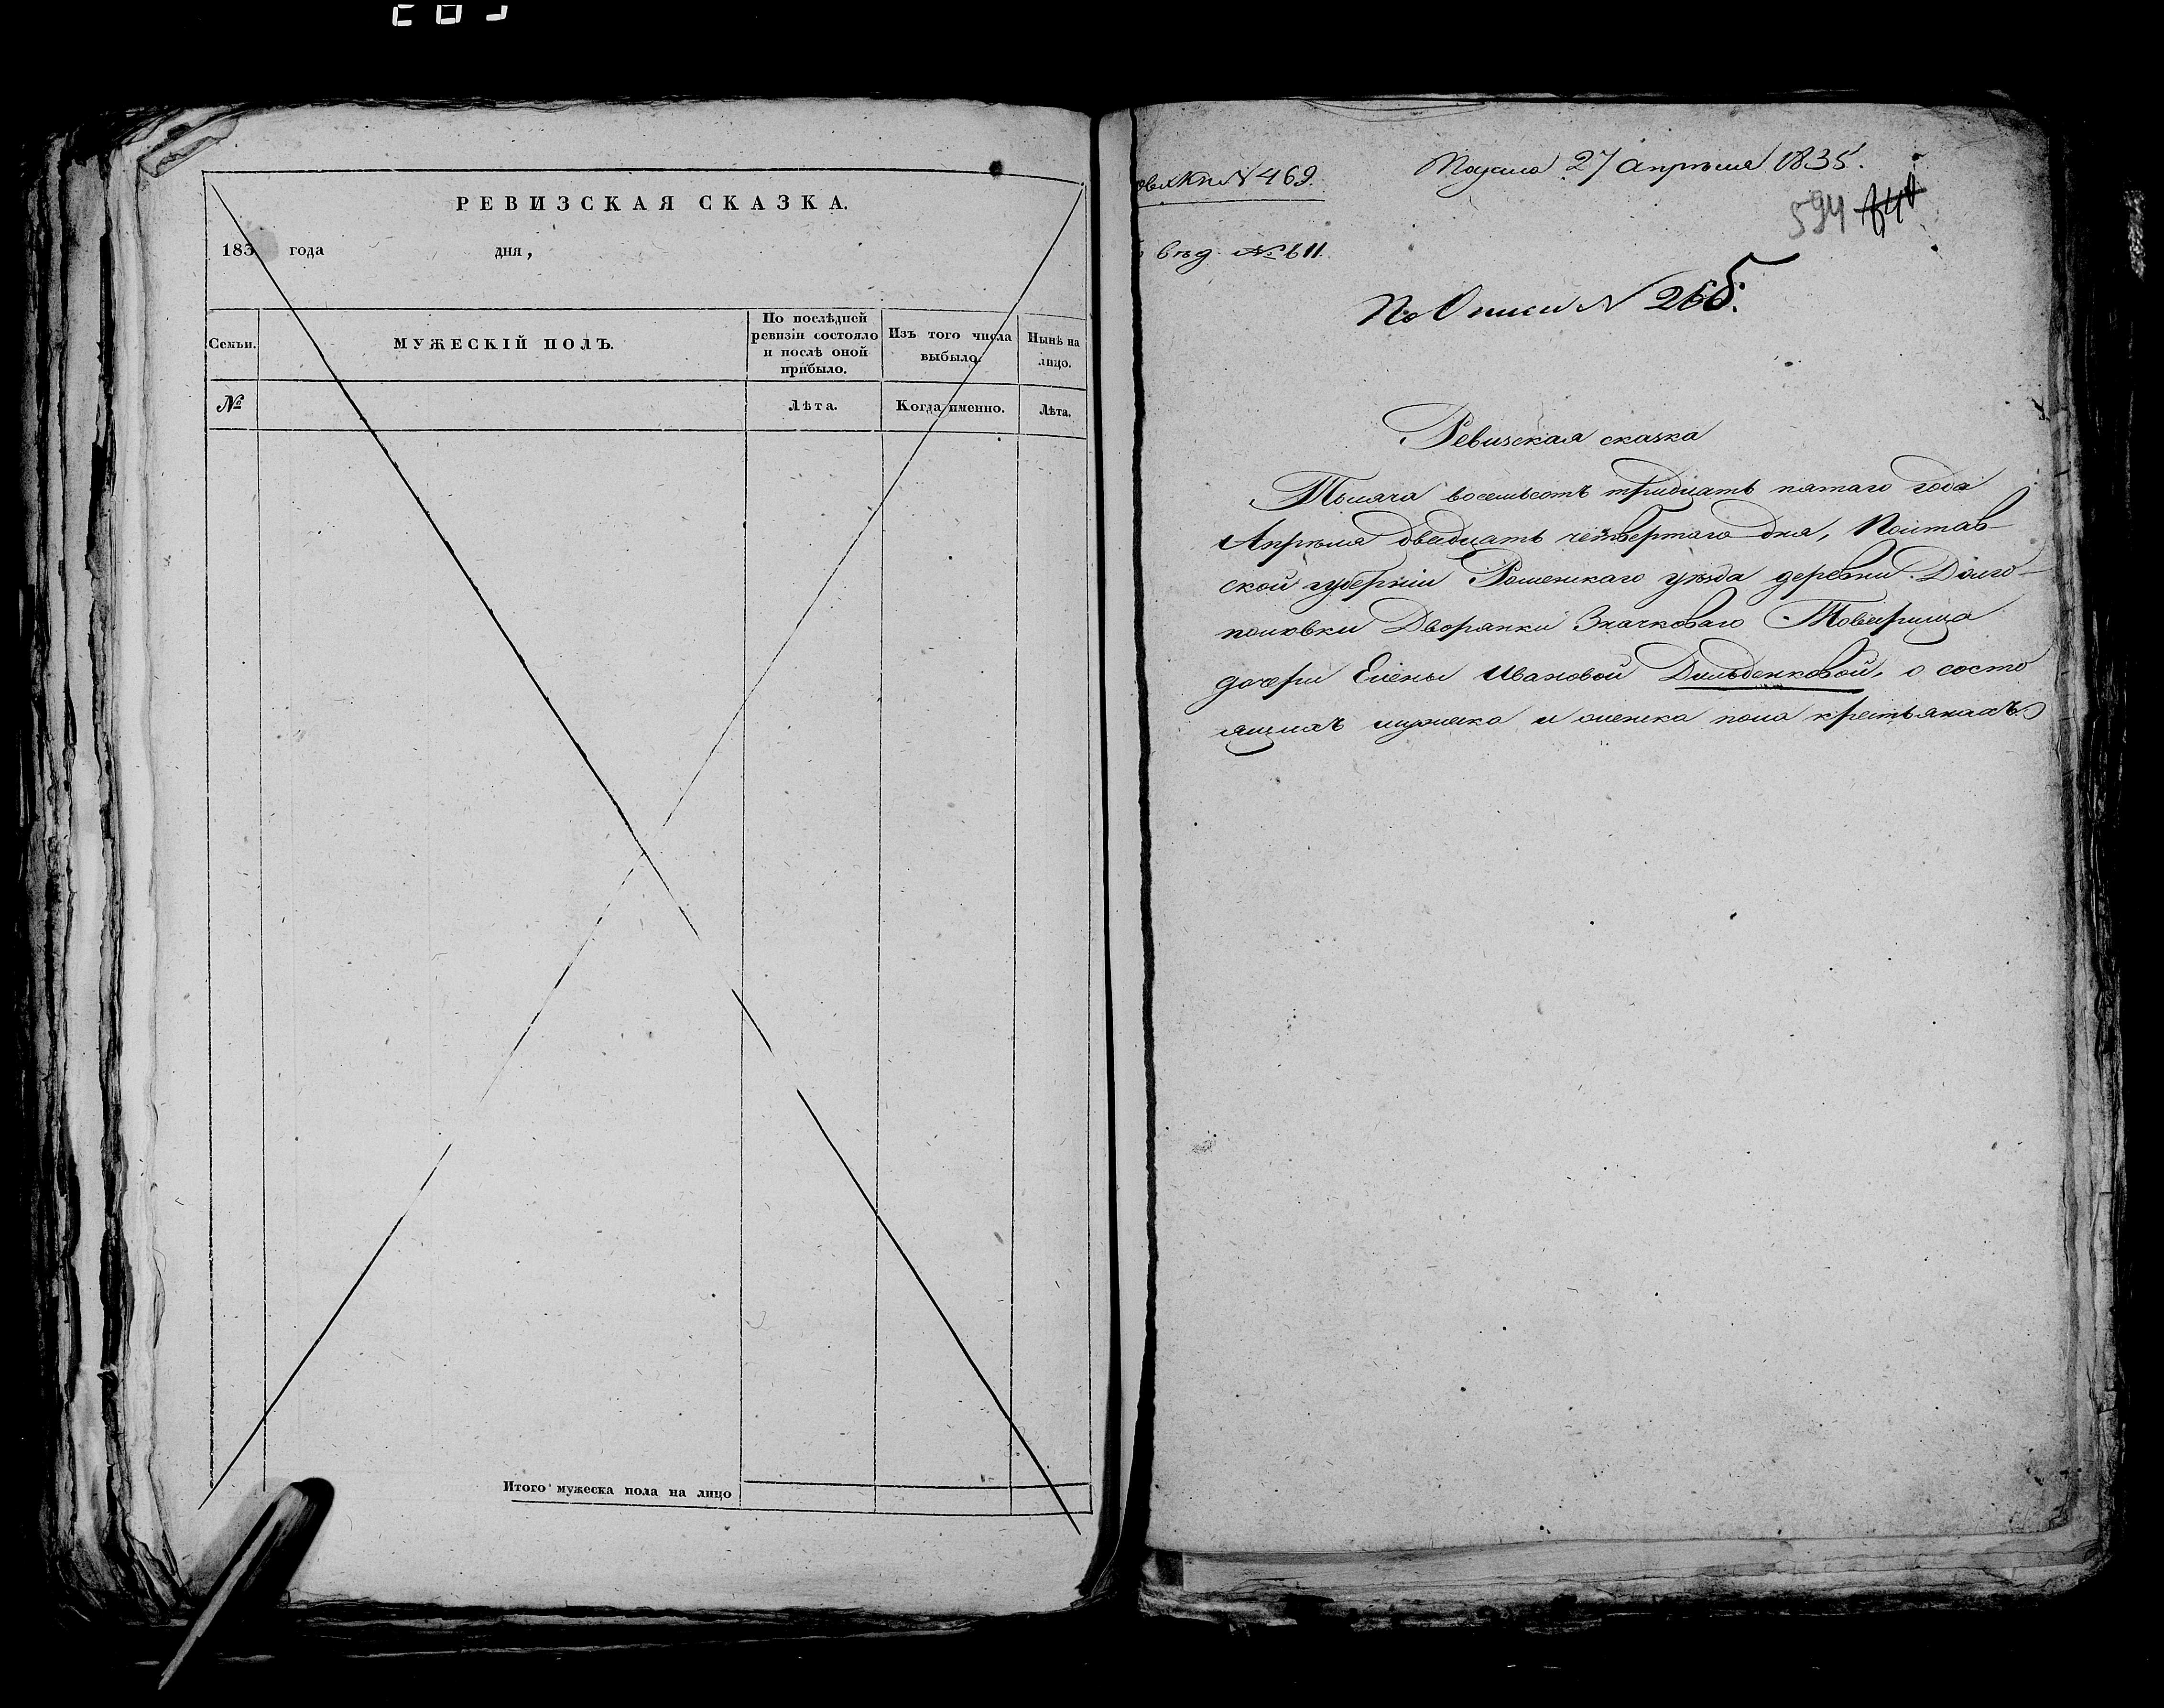 РЕВИЗСКАЯ СКАЗКА.
183 года дня,
Семьи.
МУЖЕСКІЙ ПОЛЪ.
По послѣдней
ревизіи состояло
и послѣ оной
прибыло.
Изъ того числа
выбыло.
Нынѣ на
лицо.
№
Лѣта.
Когда именно.
Лѣта.
Итого мужеска пола на лицо
№ 469.
27 Апрѣля 1835.
594
вѣд. № 611.
По Описи № 265.
Ревизская сказка
Тысяча восемьсотъ тридцать пятаго года
Апрѣля двадцать четвертаго дня, Полтав-
ской губерніи Роменскаго уѣзда деревни Долго-
половки Дворянки Значковаго Товарища
дочери Елены Ивановой Дильденковой, о состо
ящихъ мужеска и женска пола крестьянахъ